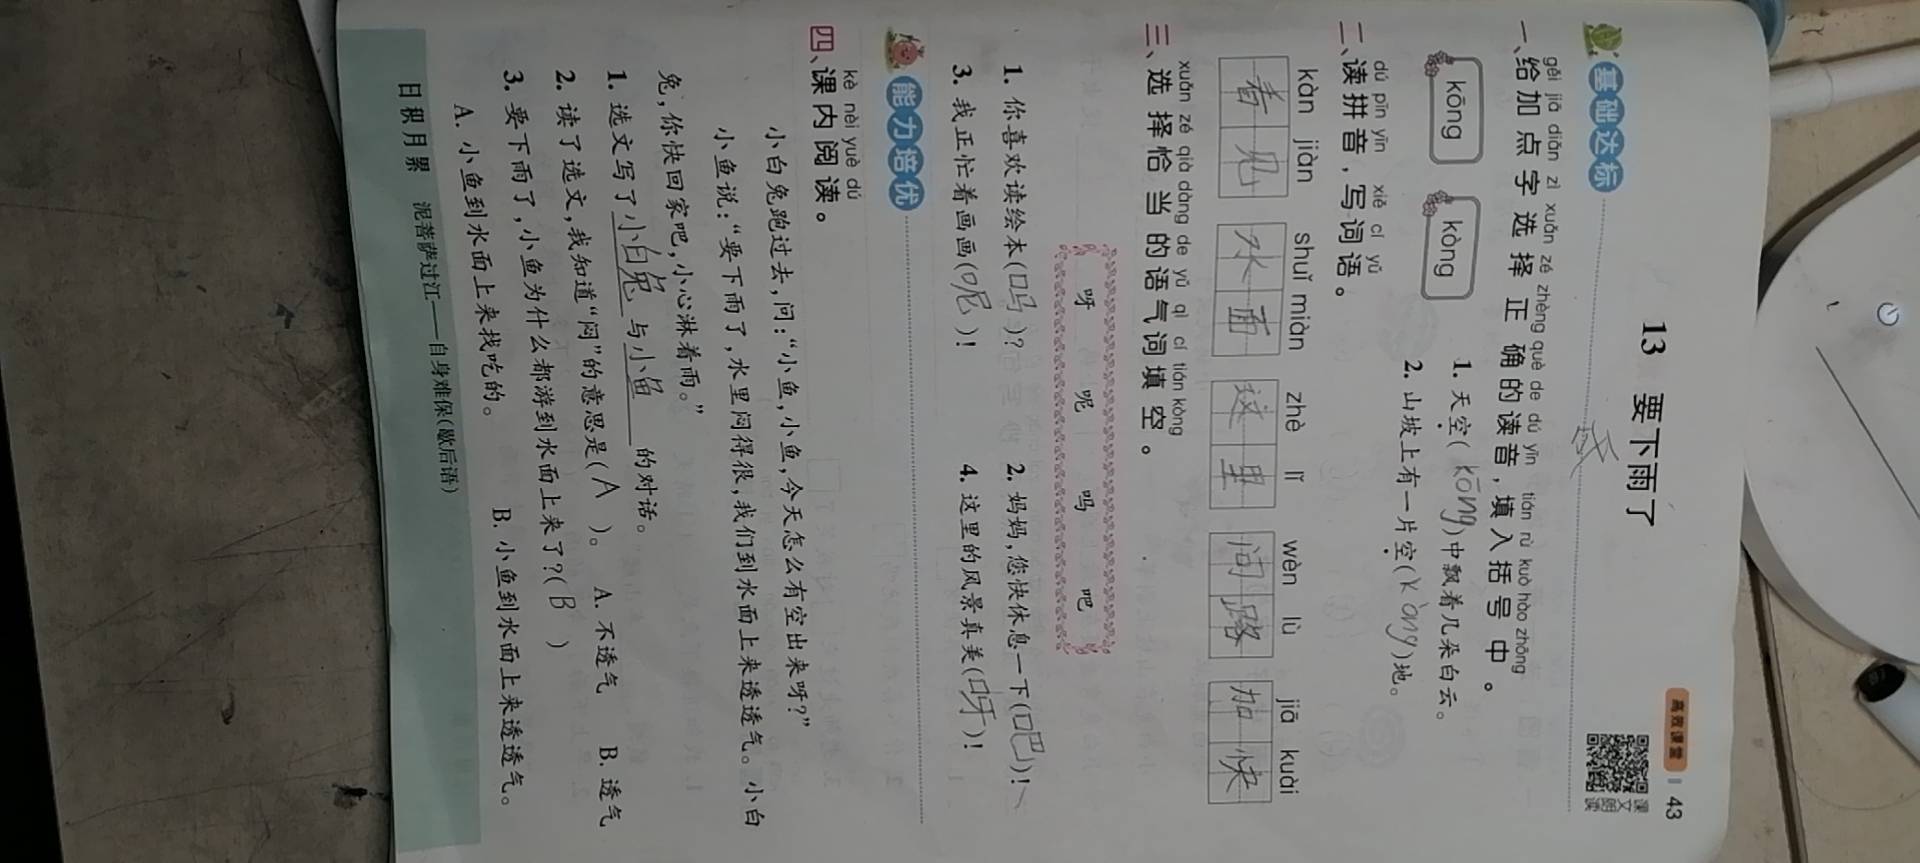 高效课堂 43
课文朗读
13 要下雨了
基础达标
gěi jiā diǎn zì xuǎn zé zhèng què de dú yīn tián rù kuò hào zhōng
一、给加点字选择正确的读音，填入括号中。
kōng kòng
1. 天空( kōng )中飘着几朵白云。
2. 山坡上有一片空( kòng )地。
dú pīn yīn xiě cí yǔ
二、读拼音，写词语。
kàn jiàn shuǐ miàn zhè lǐ wèn lù jiā kuài
看见 水面 这里 问路 加快
xuǎn zé qià dàng de yǔ qì cí tián kòng
三、选择恰当的语气词填空。
呀 呢 吗 吧
1. 你喜欢读绘本( 吗 )? 2. 妈妈,您快休息一下( 吧 )!
3. 我正忙着画画( 呢 )! 4. 这里的风景真美( 呀 )!
能力培优
kè nèi yuè dú
四、课内阅读。
小白兔跑过去,问:“小鱼,小鱼,今天怎么有空出来呀?”
小鱼说:“要下雨了,水里闷得很,我们到水面上来透透气。小白
兔,你快回家吧,小心淋着雨。”
1. 选文写了小白兔与小鱼的对话。
2. 读了选文,我知道“闷”的意思是( A )。 A. 不透气 B. 透气
3. 要下雨了,小鱼为什么都游到水面上来了?( B )
A. 小鱼到水面上来找吃的。 B. 小鱼到水面上来透透气。
日积月累 泥菩萨过江——自身难保(歇后语)